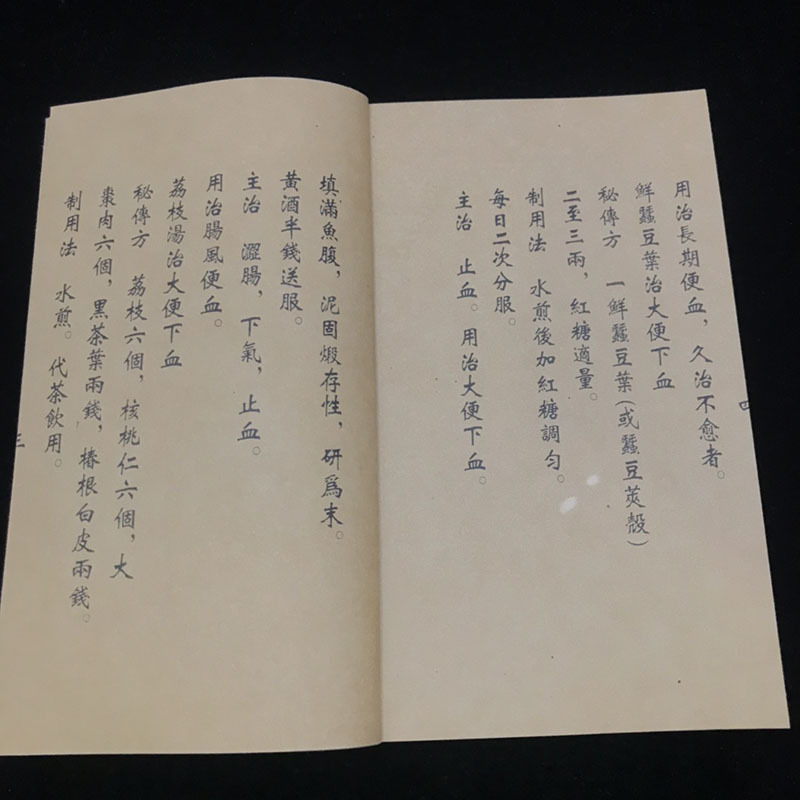 填滿魚腹，泥固煅存性，研爲末。
黃酒半錢送服。
主治　澀腸，下氣，止血。
用治腸風便血。
荔枝湯治大便下血
秘傳方　荔枝六個，核桃仁六個，大
棗肉六個，黑茶葉兩錢，椿根白皮兩錢。
制用法　水煎。代茶飲用。
三
四
用治長期便血，久治不愈者。
鮮蠶豆葉治大便下血
秘傳方　一鮮蠶豆葉（或蠶豆莢殼）
二至三兩，紅糖適量。
制用法　水煎後加紅糖調勻。
每日二次分服。
主治　止血。用治大便下血。